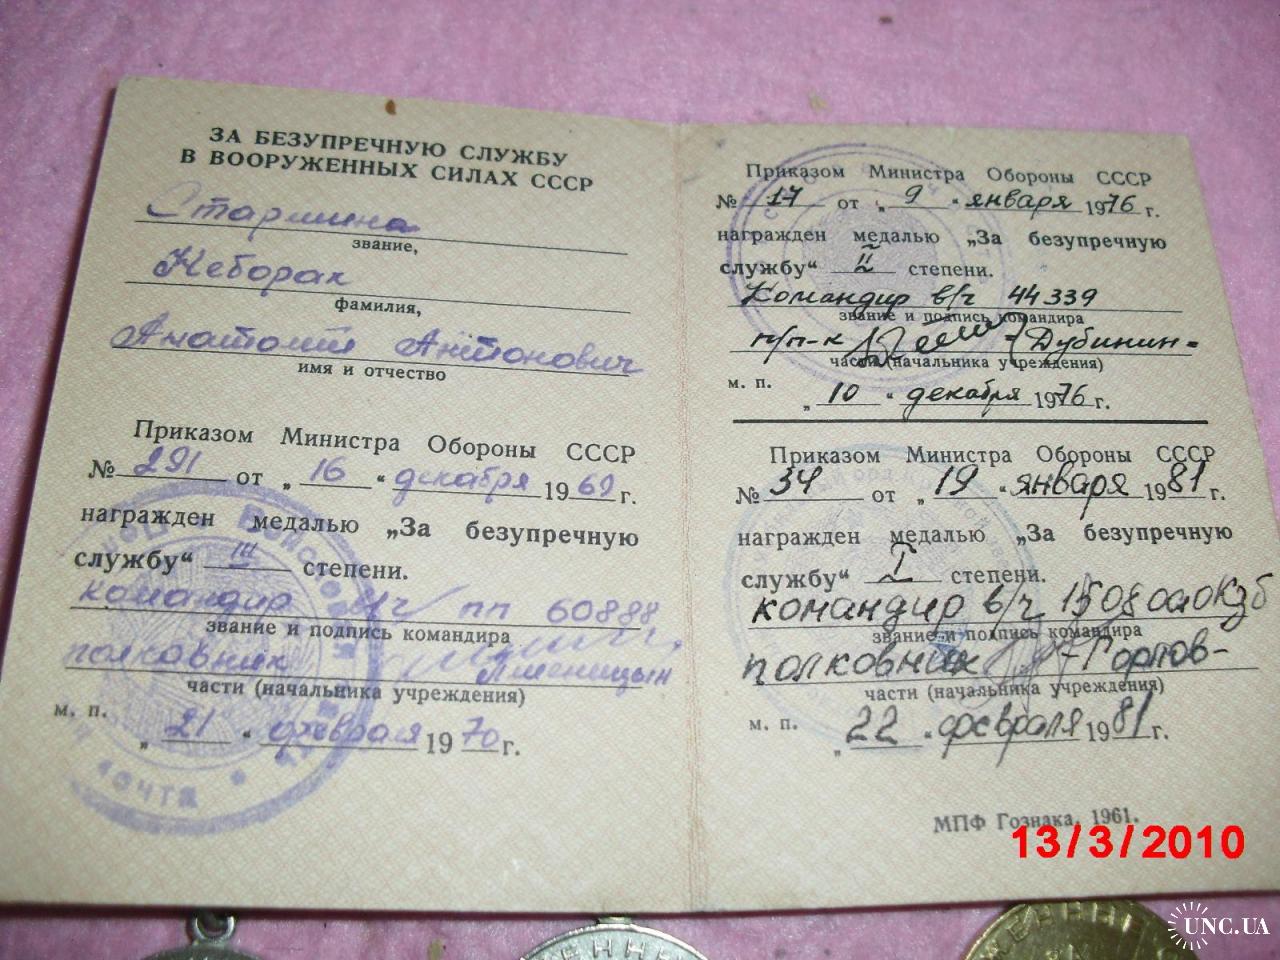 ЗА БЕЗУПРЕЧНУЮ СЛУЖБУ
В ВООРУЖЕННЫХ СИЛАХ СССР
Старшина
звание,
Неборак
фамилия,
Анатолий Антонович
имя и отчество
Приказом Министра Обороны СССР
№ 291 от „16“ декабря 1969 г.
награжден медалью „За безупречную
службу“ III степени.
командир в/ч пп 60888
звание и подпись командира
полковник Пшеницын
части (начальника учреждения)
м. п.
„21“ февраля 1970 г.
Приказом Министра Обороны СССР
№ 17 от „9“ января 1976 г.
награжден медалью „За безупречную
службу“ II степени.
Командир в/ч 44339
звание и подпись командира
п/п-к Дубинин
части (начальника учреждения)
м. п.
„10“ декабря 1976 г.
Приказом Министра Обороны СССР
№ 34 от „19“ января 1981 г.
награжден медалью „За безупречную
службу“ I степени.
командир в/ч
звание и подпись командира
полковник Горлов
части (начальника учреждения)
м. п.
„22“ февраля 1981 г.
МПФ Гознака, 1961.
13/3/2010
UNC.UA